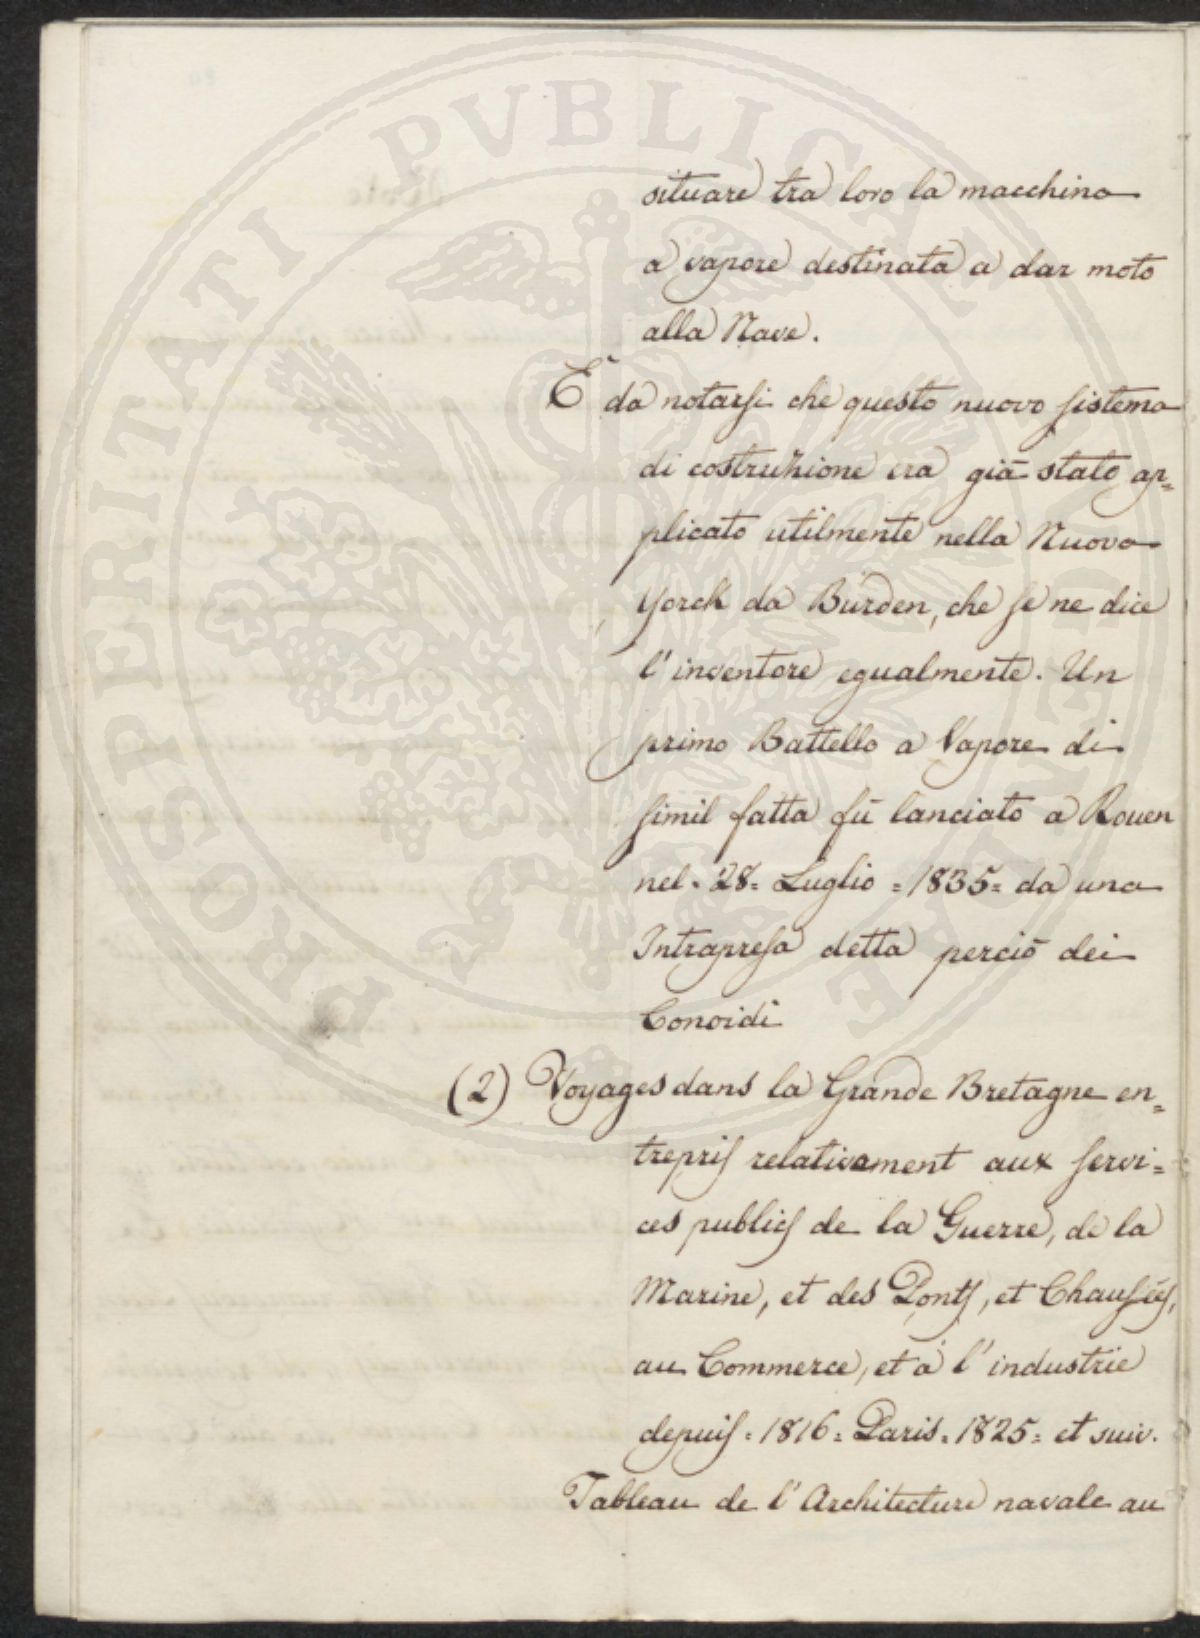 PROSPERITATI PUBLICAE AUGENDAE
situare tra loro la macchina
a vapore destinata a dar moto
alla Nave.
E' da notarsi che questo nuovo sistema
di costruzione era già stato ap=
plicato utilmente nella Nuova
Yorck da Burden, che se ne dice
l'inventore egualmente. Un
primo Battello a Vapore di
simil fatta fù lanciato a Rouen
nel = 28 = Luglio = 1835 = da una
Intrapresa detta perciò dei
Conoidi
(2) Voyages dans la Grande Bretagne en=
trepris relativement aux servi=
ces publics de la Guerre, de la
Marine, et des Ponts, et Chaussées,
au Commerce, et à l'industrie
depuis = 1816 = Paris = 1825 = et suiv.
Tableau de l'Architecture navale au